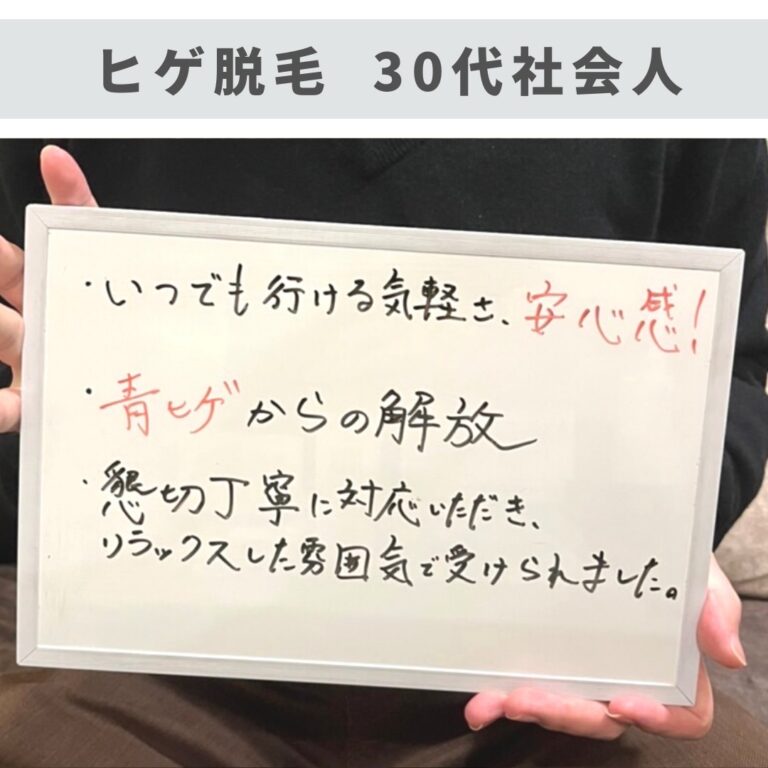 ヒゲ脱毛 30代社会人
・いつでも行ける気軽さ、安心感!
・青ヒゲからの解放
・懇切丁寧に対応いただき、
リラックスした雰囲気で受けられました。